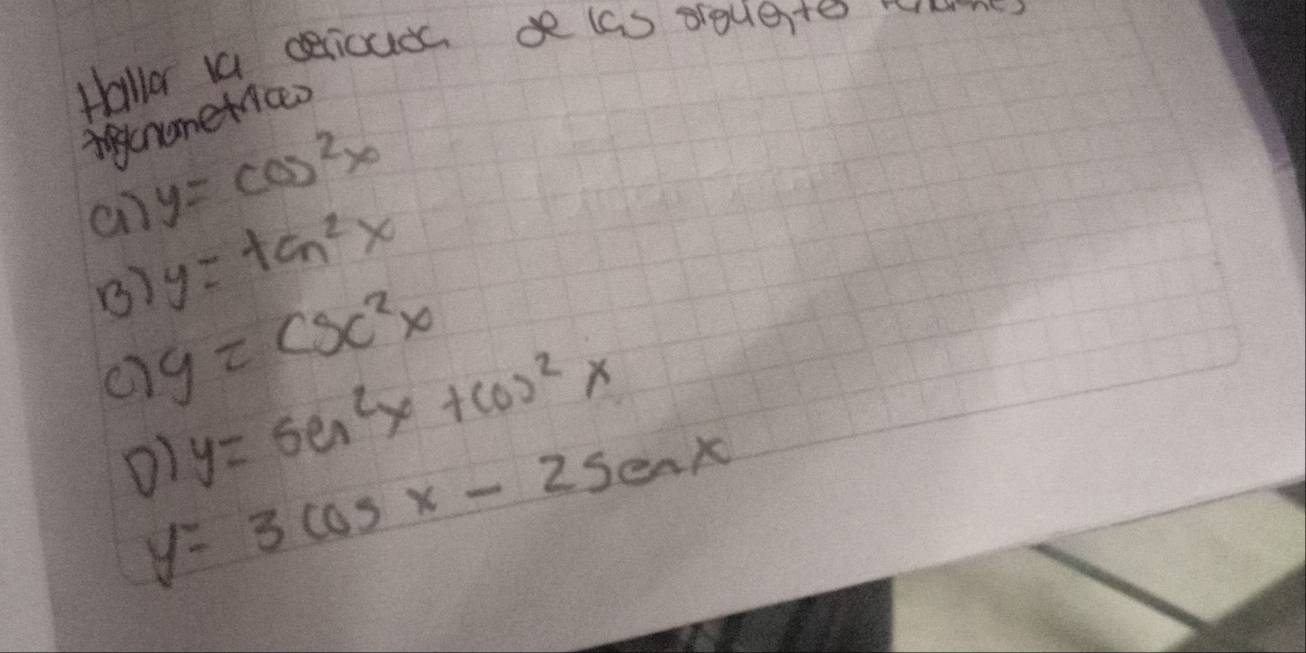 Hallar la derivada de las siguiente
trigonometricas
a) y = cos²x
B) y = tan²x
c) y = csc²x
D) y = sen²x + cos²x
y = 3 cos x - 2 sen x